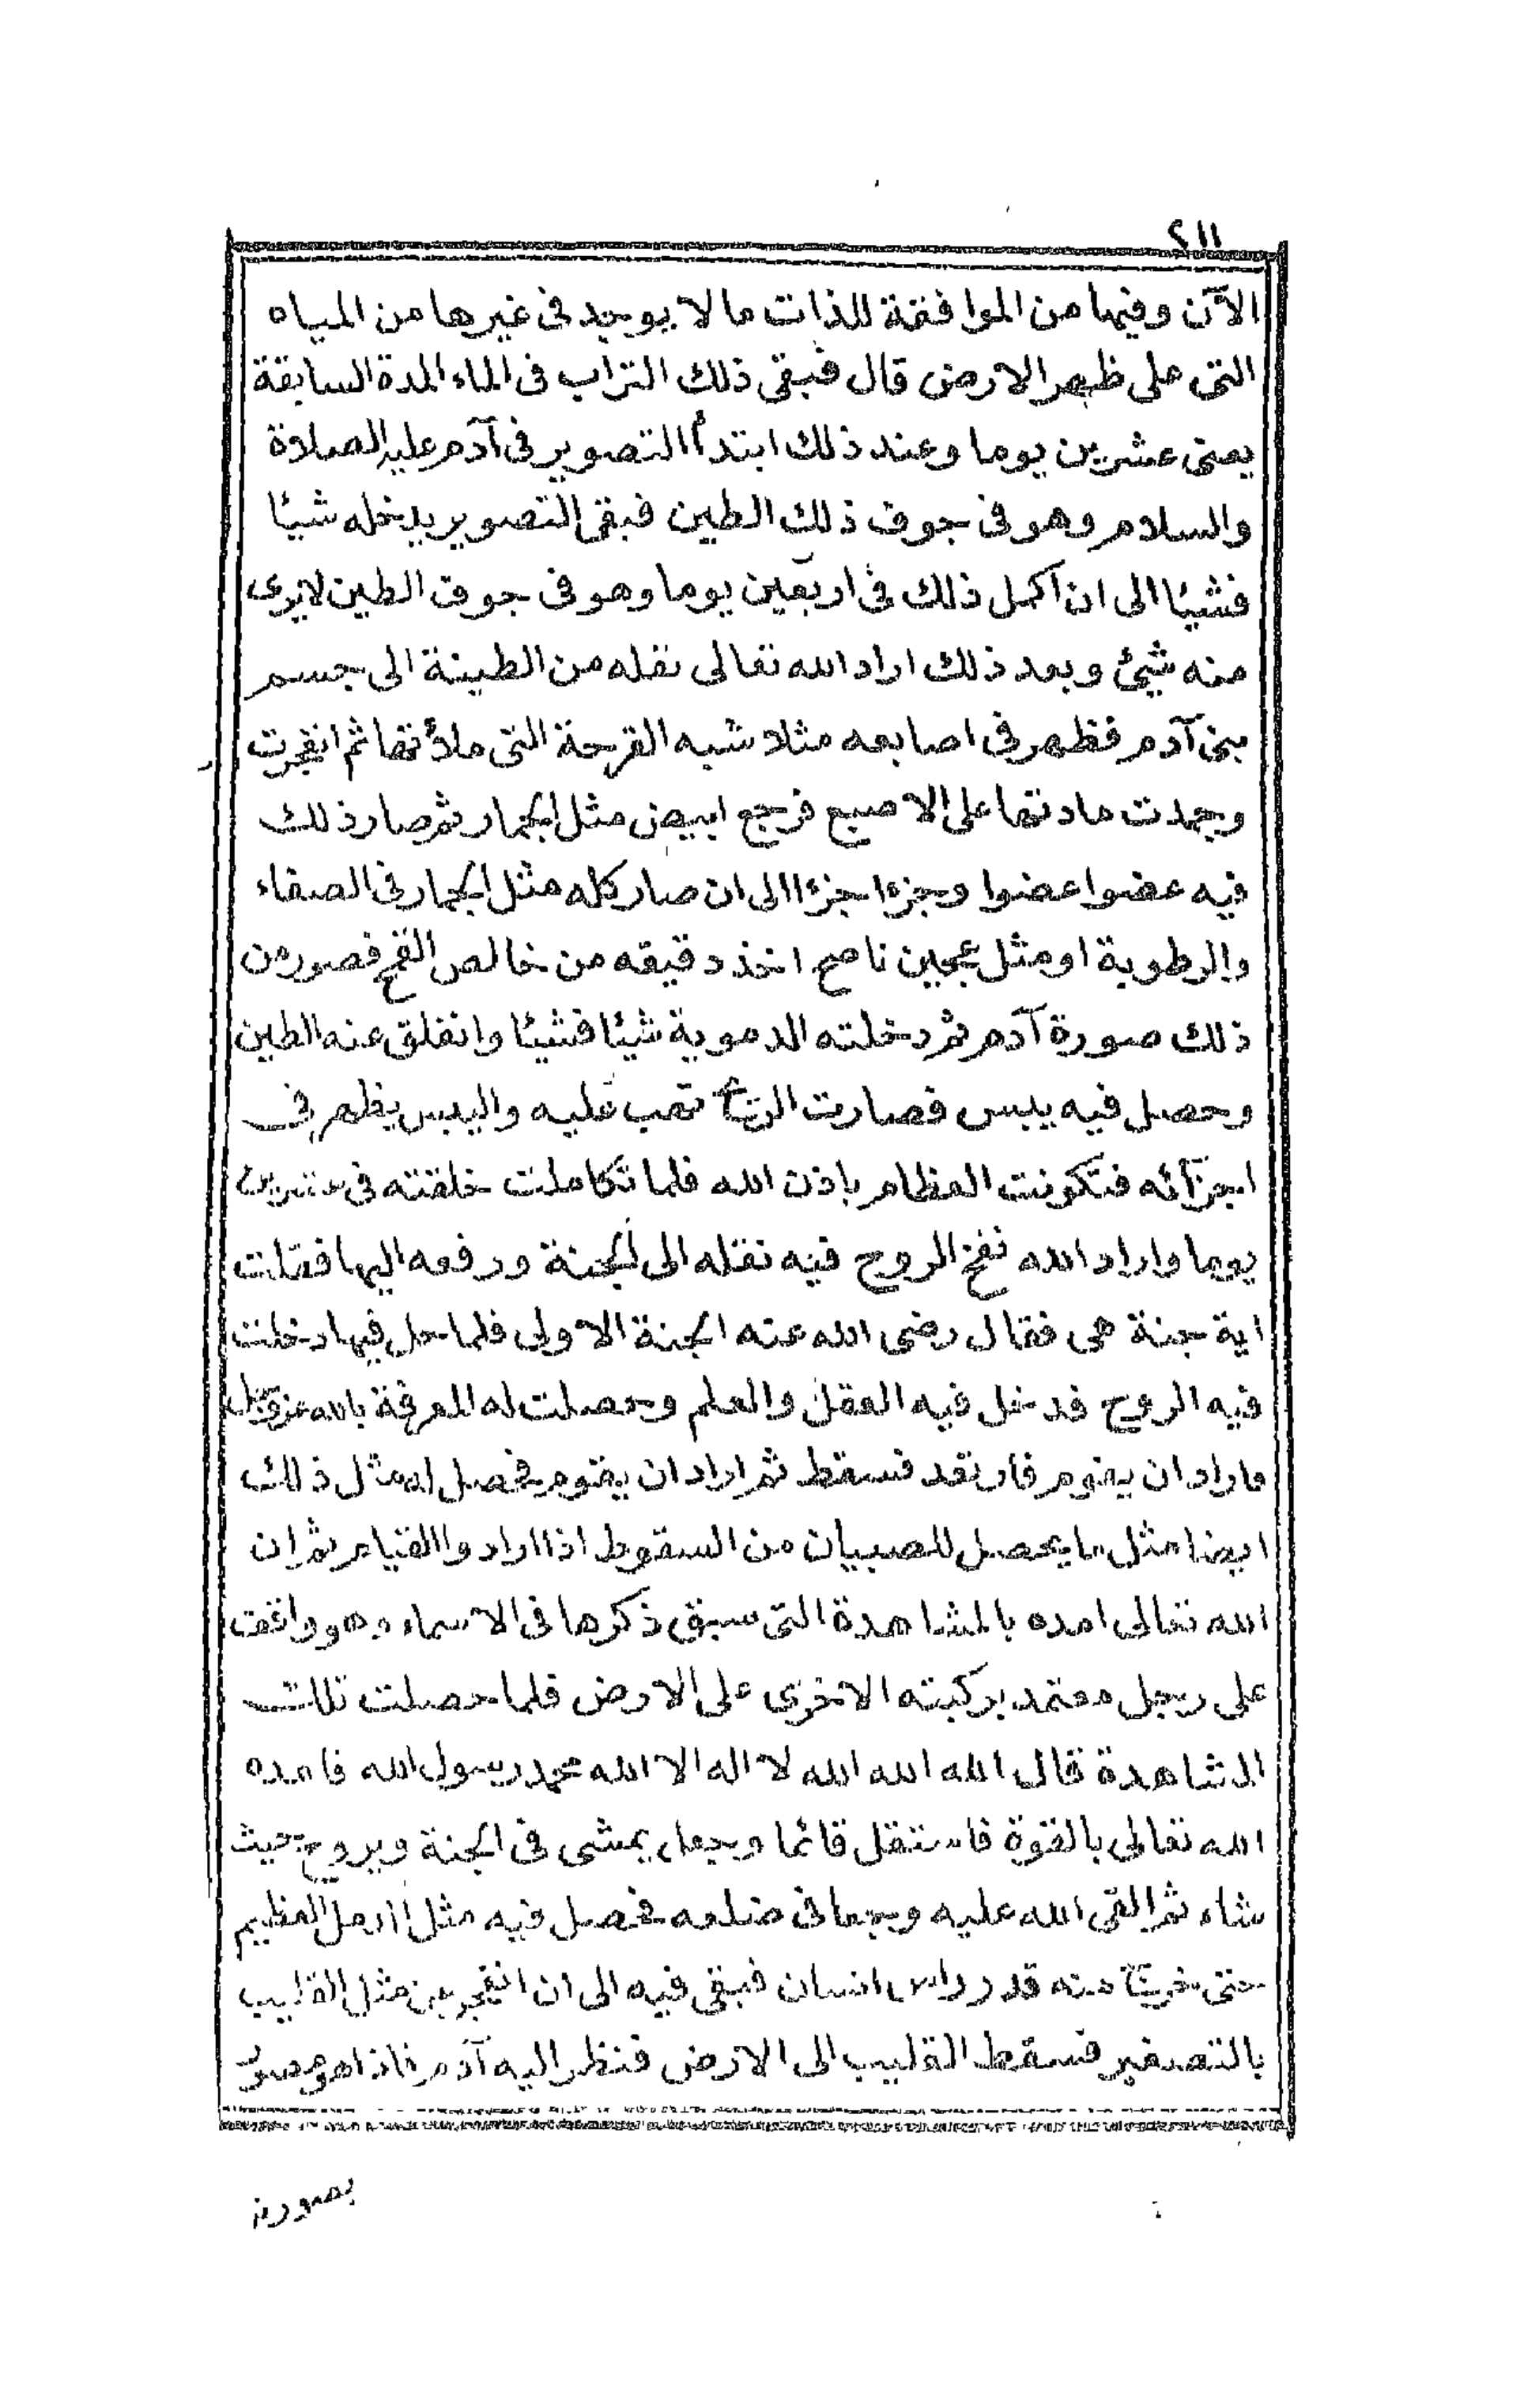 ٢١١
الآن وفيها من الموافقة للذات ما لا يوجد فى غيرها من المياه
التى على ظهر الارض قال فبقى ذلك التراب فى الماء المدة السابقة
يعنى عشرين يوما وعند ذلك ابتدأ التصوير فى آدم عليه الصلاة
والسلام وهو فى جوف ذلك الطين فبقى التصوير يدخله شيئا
فشيئا الى ان اكمل ذلك فى اربعين يوما وهو فى جوف الطين لا يرى
منه شيئ وبعد ذلك اراد الله تعالى نقله من الطينة الى جسم
بنى آدم فظهر فى اصابعه مثلا شبه القرحة التى ملأتها ثم انفجرت
وجمدت مادتها على الاصبع فرجع ابيض مثل الجمار ثم صار ذلك
فيه عضوا عضوا وجزءا جزءا الى ان صار كله مثل الجمار فى الصفاء
والرطوبة او مثل عجين ناصح اخذ دقيقه من خالص القمح فصور من
ذلك صورة آدم ثم دخلته الدموية شيئا فشيئا وانفلق عنه الطين
وحصل فيه يبس فصارت الريح تهب عليه واليبس يظهر فى
اجزآئه فتكونت العظام باذن الله فلما تكاملت خلقته فى عشرين
يوما واراد الله نفخ الروح فيه نقله الى الجنة ورفعه اليها فقلت
اية جنة هى فقال رضى الله عنه الجنة الاولى فلما حل فيها دخلت
فيه الروح فدخل فيه العقل والعلم وحصلت له المعرفة بالله عز وجل
فاراد ان يقوم فارتعد فسقط ثم اراد ان يقوم فحصل له مثل ذلك
ايضا مثل ما يحصل للصبيان من السقوط اذا ارادوا القيام ثم ان
الله تعالى امده بالمشاهدة التى سبق ذكرها فى الاسماء وهو واقف
على رجل معتمد بركبته الاخرى على الارض فلما حصلت تلك
المشاهدة قال الله الله الله لا اله الا الله محمد رسول الله فامده
الله تعالى بالقوة فاستقل قائما وجعل يمشى فى الجنة ويروح حيث
شاء ثم القى الله عليه وجعا فى ضلعه فحصل فيه مثل الدمل العظيم
حتى خرج منه قدر راس انسان فبقى فيه الى ان انفجر عن مثل القليب
بالتصغير فسقط القليب الى الارض فنظر اليه آدم فاذا هو مصور
بصورته